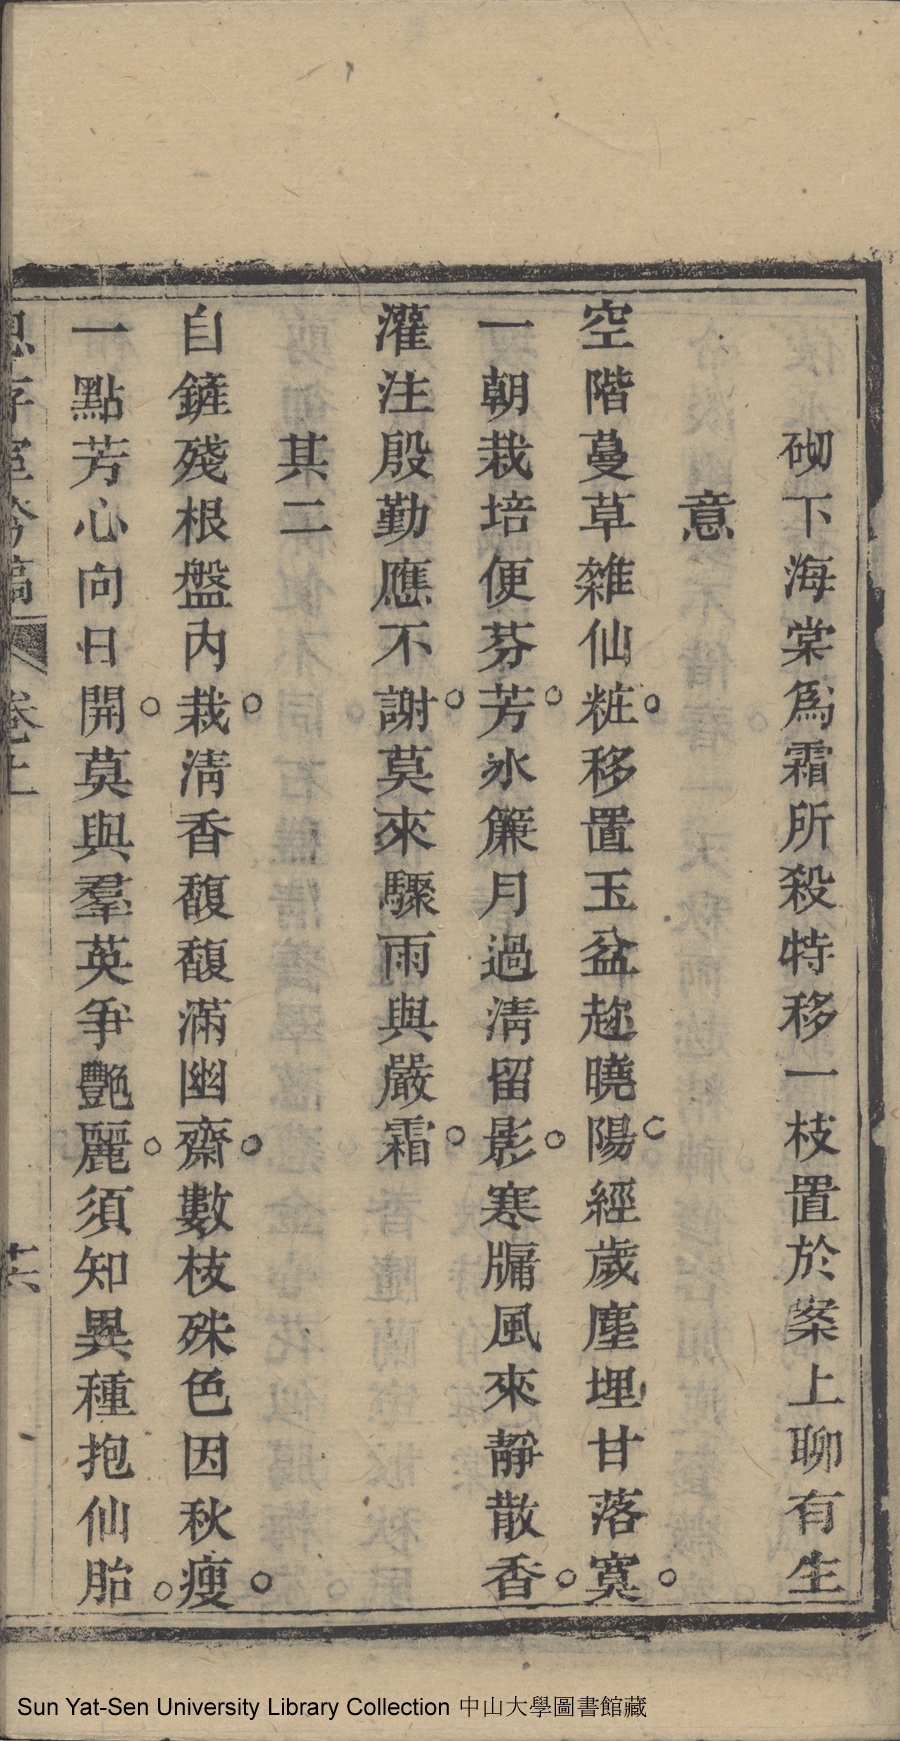 砌下海棠爲霜所殺特移一枝置於案上聊有生
意
空階蔓草雜仙粧移置玉盆趂曉陽經歲塵埋甘落寞
一朝栽培便芬芳氷簾月過清留影寒牖風來靜散香
灌注殷勤應不謝莫來驟雨與嚴霜
其二
自鏟殘根盤內栽清香馥馥滿幽齋數枝殊色因秋瘦
一點芳心向日開莫與羣英爭艷麗須知異種抱仙胎
思存室吟稿 卷上 十六
Sun Yat-Sen University Library Collection 中山大學圖書館藏